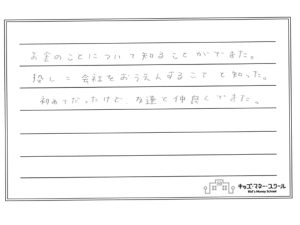 お金のことについて知ることができた。
投しは会社をおうえんすることと知った。
初めてだったけど、友達と仲良くできた。
キッズ・マネー・スクール
Kid's Money School